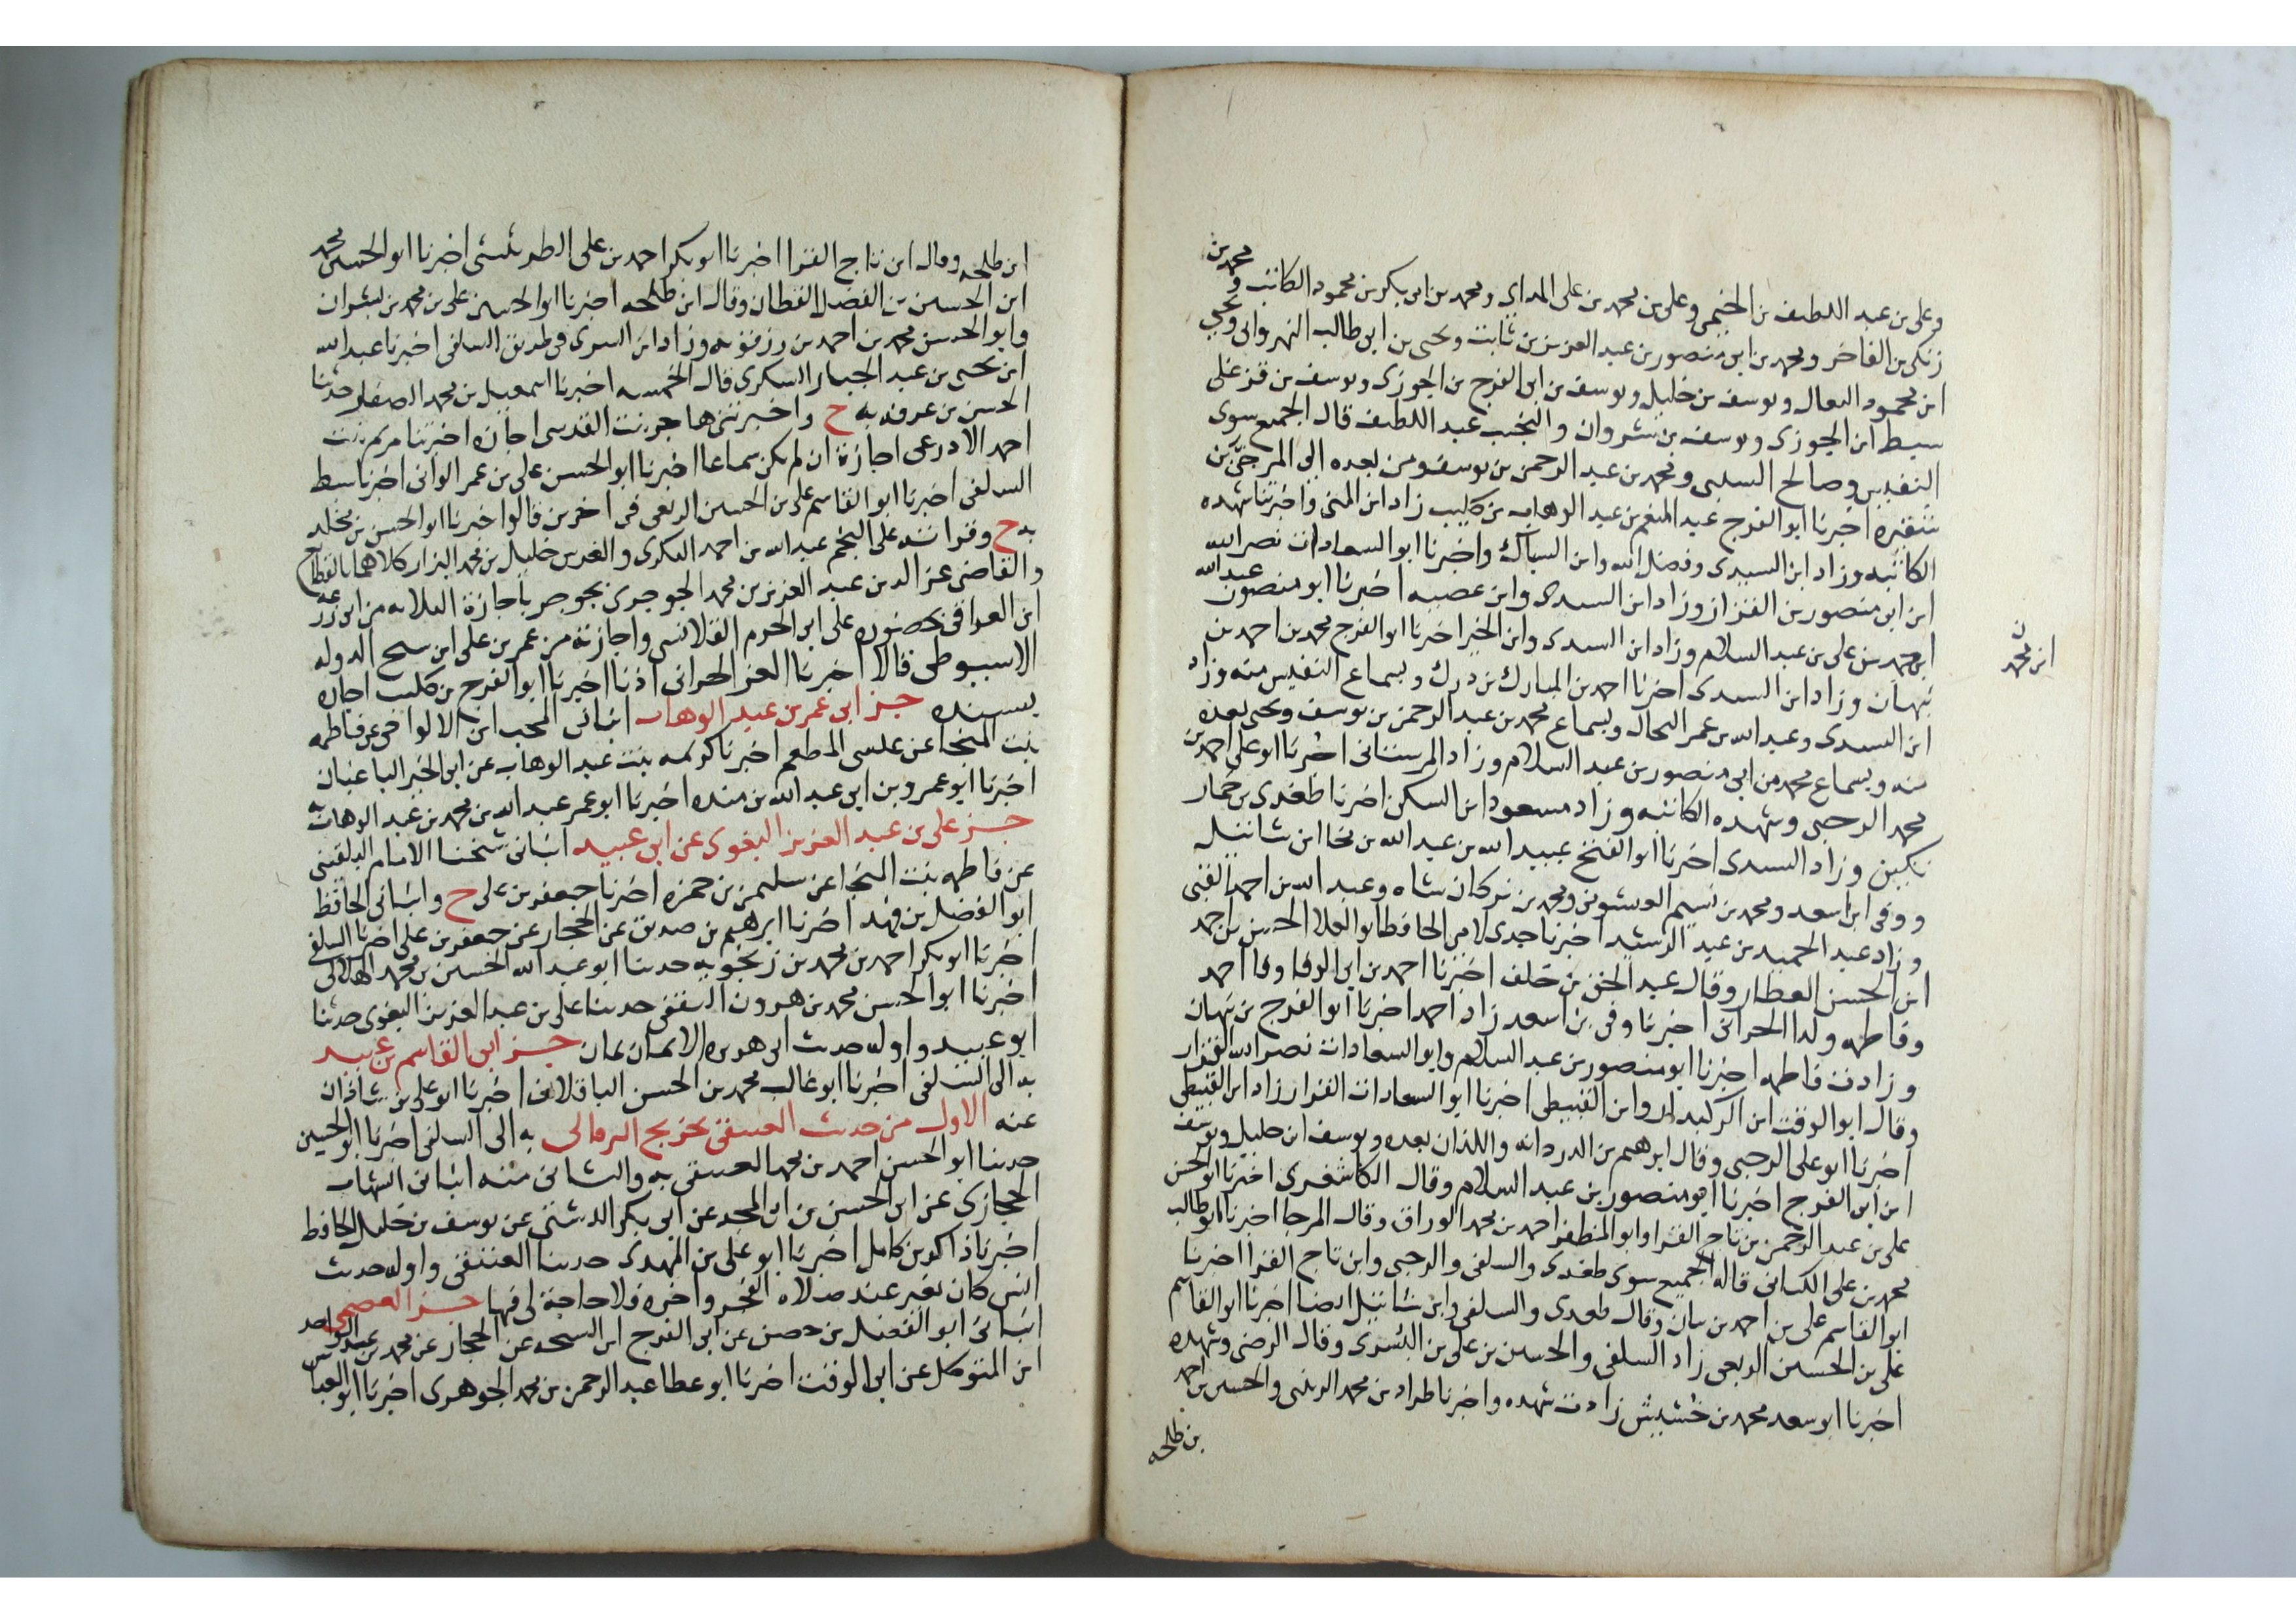 وعلى بن عبد اللطيف بن الخيمى وعلى بن محمد بن على المداى ومحمد بن ابى بكر بن محمود الكاتب ومحمد بن
زنكى بن الفاخر ومحمد بن ابى منصور بن عبد العزيز بن ثابت ويحيى بن ابى طالب النهروانى ويحيى
ابن محمود النعال ويوسف بن خليل ويوسف بن ابى الفرج بن الجوزى ويوسف بن قزغلى
سبط ابن الجوزى ويوسف بن شروان والنجيب عبد اللطيف قال الجميع سوى
النفيس وصالح السلمى ومحمد بن عبد الرحمن بن يوسف ومن بعده الى المرجى بن
شقيره اخبرنا ابو الفرج عبد المنعم بن عبد الوهاب بن كليب زاد ابن المنى واخبرتنا شهده
الكاتبه وزاد ابن السيدى وفضل الله وابن السباك واخبرنا ابو السعادات نصر الله
ابن ابى منصور بن القزاز وزاد ابن السيدى وابن عصيه اخبرنا ابو منصور عبد الله
ابن محمد بن على بن عبد السلام وزاد ابن السيدى وابن الخير اخبرنا ابو الفرج محمد بن احمد بن
ابن محمد
نبهان وزاد ابن السيدى اخبرنا احمد بن المبارك بن درك وبسماع النفيس منه وزاد
ابن السيدى وعبد الله بن عمر النحال وبسماع محمد بن عبد الرحمن بن يوسف ويحيى بعده
منه وبسماع محمد بن ابى منصور بن عبد السلام وزاد المرستانى اخبرنا ابو على احمد بن
محمد الرحبى وشهده الكاتبه وزاد مسعود ابن السكن اخبرنا طغدى بن خمار
تكين وزاد السيدى اخبرنا ابو الفتح عبيد الله بن عبد الله بن نجا ابن شاتيل
ووفى ابن اسعد ومحمد بن نسيم العيشونى ومحمد بن تركان شاه وعبد الله بن احمد
وزاد عبد الحميد بن عبد الرشيد اخبرنا جدى لامى الحافظ ابو العلا الحسن بن احمد
ابن الحسن العطار وقال عبد الحق بن خلف اخبرنا احمد بن ابى الوفا وقا احمد
وفاطمه ولدا الحرانى اخبرنا وفى بن اسعد زاد احمد اخبرنا ابو الفرج بن نبهان
وزادت فاطمه اخبرنا ابو منصور بن عبد السلام وابو السعادات نصر الله القزاز
وقال ابو الوقت ابن الركبدار وابن القبيطى اخبرنا ابو السعادات القزاز زاد ابن القبيطى
اخبرنا ابو على الرحبى وقال ابرهيم بن الدردانه واللذان بعده ويوسف ابن خليل ويوسف
ابن ابى الفرج اخبرنا ابو منصور بن عبد السلام وقال الكاشغرى اخبرنا ابو الحسن
على بن عبد الرحمن بن تاج القرا وابو المظفر احمد بن محمد الوراق وقال المرجا اخبرنا ابو طالب
محمد بن على الكتانى قال الجميع سوى طغدى والسلفى والرحبى وابن تاج القرا اخبرنا
ابو القاسم على بن احمد بن بيان وقال طغدى والسلفى وابن شاتيل ايضا اخبرنا ابو القاسم
على بن الحسين الربعى زاد السلفى والحسين بن على بن البسرى وقال الرضى وشهده
اخبرنا ابو سعد محمد بن خشيش زادت شهده واخبرنا طراد بن محمد الزينبى والحسين بن احمد
بن طلحه
ابن طلحه وقال ابن تاج القرا اخبرنا ابو بكر احمد بن على الطريثيثى اخبرنا ابو الحسين محمد
ابن الحسين بن الفضل القطان وقال ابن طلحه اخبرنا ابو الحسين على بن محمد بن بشران
وابو الحسن محمد بن احمد بن رزقويه وزاد ابن البسرى وطريق السلفى اخبرنا عبد الله
ابن يحيى بن عبد الجبار السكرى قال الخمسه اخبرنا اسمعيل بن محمد الصفار حدثنا
الحسن بن عرفه به ح واخبرتنى هاجر بنت القدسى اجازه اخبرتنا مريم بنت
احمد الاذرعى اجازة ان لم يكن سماعا اخبرنا ابو الحسن على بن عمر الوانى اخبرنا سبط
السلفى اخبرنا ابو القاسم على بن الحسين الربعى فى اخرين قالوا اخبرنا ابو الحسن بن مخلد
به ح وقراته على النجم عبد الله بن احمد البكرى والغرس خليل بن محمد البزار كلاهما
والقاضى عز الدين عبد العزيز بن محمد الجوجرى بجوجر باجازة الثلاثه من ابى زرعة
ابن العراقى على ابى الحرم القلانسى واجازته من عمر بن على ابن الدوله
الاسيوطى قالا اخبرنا العز الحرانى اذنا اخبرنا ابو الفرج بن كليب اجازه
بسنده جز ابى عمر بن عبد الوهاب انبانى المحب ابن الالواحى عن فاطمه
بنت المنجا عن عيسى المطعم اخبرتنا كريمه بنت عبد الوهاب عن ابى الخير الباغبان
اخبرنا ابو عمرو بن ابى عبد الله بن منده اخبرنا ابو عمر عبد الله بن محمد بن عبد الوهاب به
جز على بن عبد العزيز البغوى عن ابى عبيد انبانى شيخنا الامام البلقينى
عن فاطمه بنت المنجا عن سليمن بن حمزه اخبرنا جعفر بن على ح وانبانى الحافظ
ابو الفضل بن فهد اخبرنا ابرهيم بن صديق عن الحجار عن جعفر بن على اخبرنا السلفى
اخبرنا ابو بكر احمد بن محمد بن زنجويه حدثنا ابو عبد الله الحسين بن محمد الهلالى
اخبرنا ابو الحسن محمد بن هرون الثقفى حدثنا على بن عبد العزيز البغوى حدثنا
ابو عبيد واوله حديث ابى هريره الايمان يمان جز ابى القاسم بن عبيد
به الى السلفى اخبرنا ابو غالب محمد بن الحسن الباقلانى اخبرنا ابو على بن شاذان
عنه الاول من حديث العتيقى تخريج به الى السلفى اخبرنا ابو الحسين
حدثنا ابو الحسن احمد بن محمد العتيقى به والثانى منه انبانى الشهاب
الحجازى عن ابى الحسن بن ابى المجد عن ابى بكر الدشتى عن يوسف بن خليل الحافظ
اخبرنا ذاكر بن كامل اخبرنا ابو على بن المهدى حدثنا العتيقى واوله حديث
انس كان يغير عند صلاه الفجر واخره فلا حاجة لى فيها جز العصمى
انبانى ابو الفضل بن حصن عن ابى الفرج ابن الشحنه عن الحجار عن محمد بن عبد الواحد
ابن المتوكل عن ابى الوقت اخبرنا ابو عطا عبد الرحمن بن محمد الجوهرى اخبرنا ابو العباس